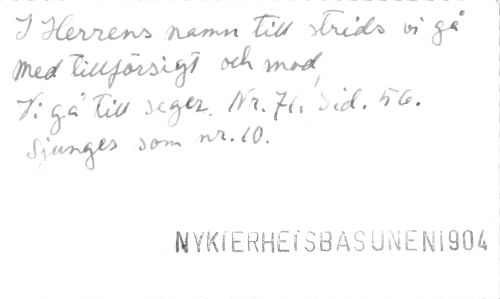 I Herrens namn till strids vi gå
med tillförsigt och mod,
Vi gå till seger. Nr. 71, Sid. 56.
Sjunges som nr. 10.
NYKTERHETSBASUNEN 1904